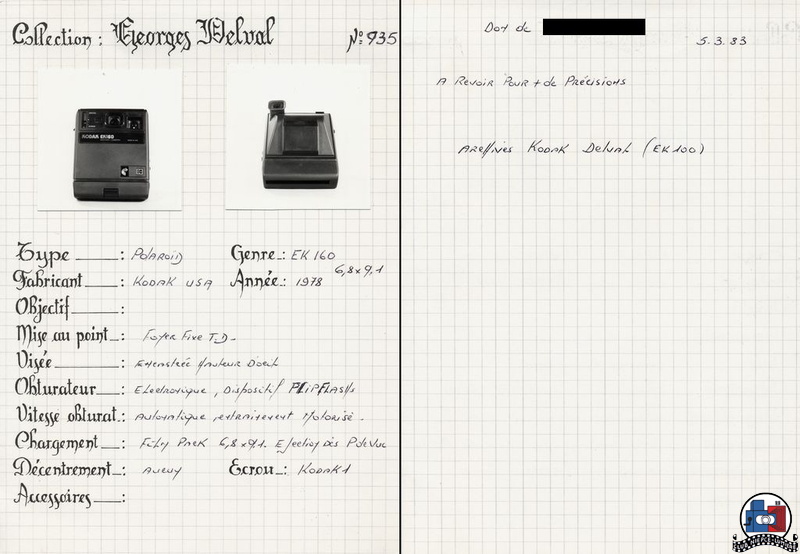 Collection : Georges Delval N° 935
KODAK EK160
Type : POLAROID Genre : EK 160
Fabricant : KODAK USA Année : 1978 6,8x9,1
Objectif :
Mise au point : FOYER FIXE T.D.
Visée : EXTENSIBLE HAUTEUR D'OEIL
Obturateur : Electronique, Dispositif FLIPFLASH
Vitesse obturat. : Automatique, entrainement Motorisé.
Chargement : FILM PACK 6,8x9,1. Ejection Dès P. de Vue
Décentrement : AUCUN Ecrou : KODAK 1
Accessoires :
Don de
5.3.83
A Revoir Pour + de Précisions
ARCHIVES KODAK Delval (EK100)